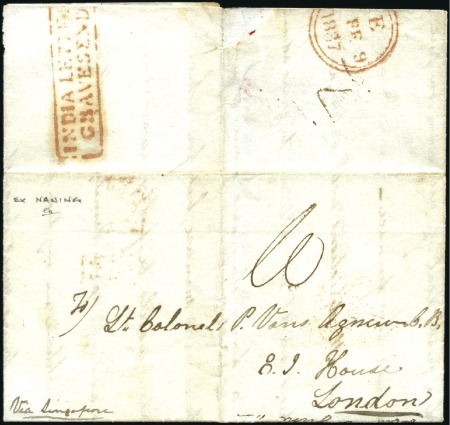 INDIA LETTER
GRAVESEND
E
9 FE 9
1837
EX NANING
Lt. Colonel P. Vans Agnew C.B.
E. I. House
London
Via Singapore